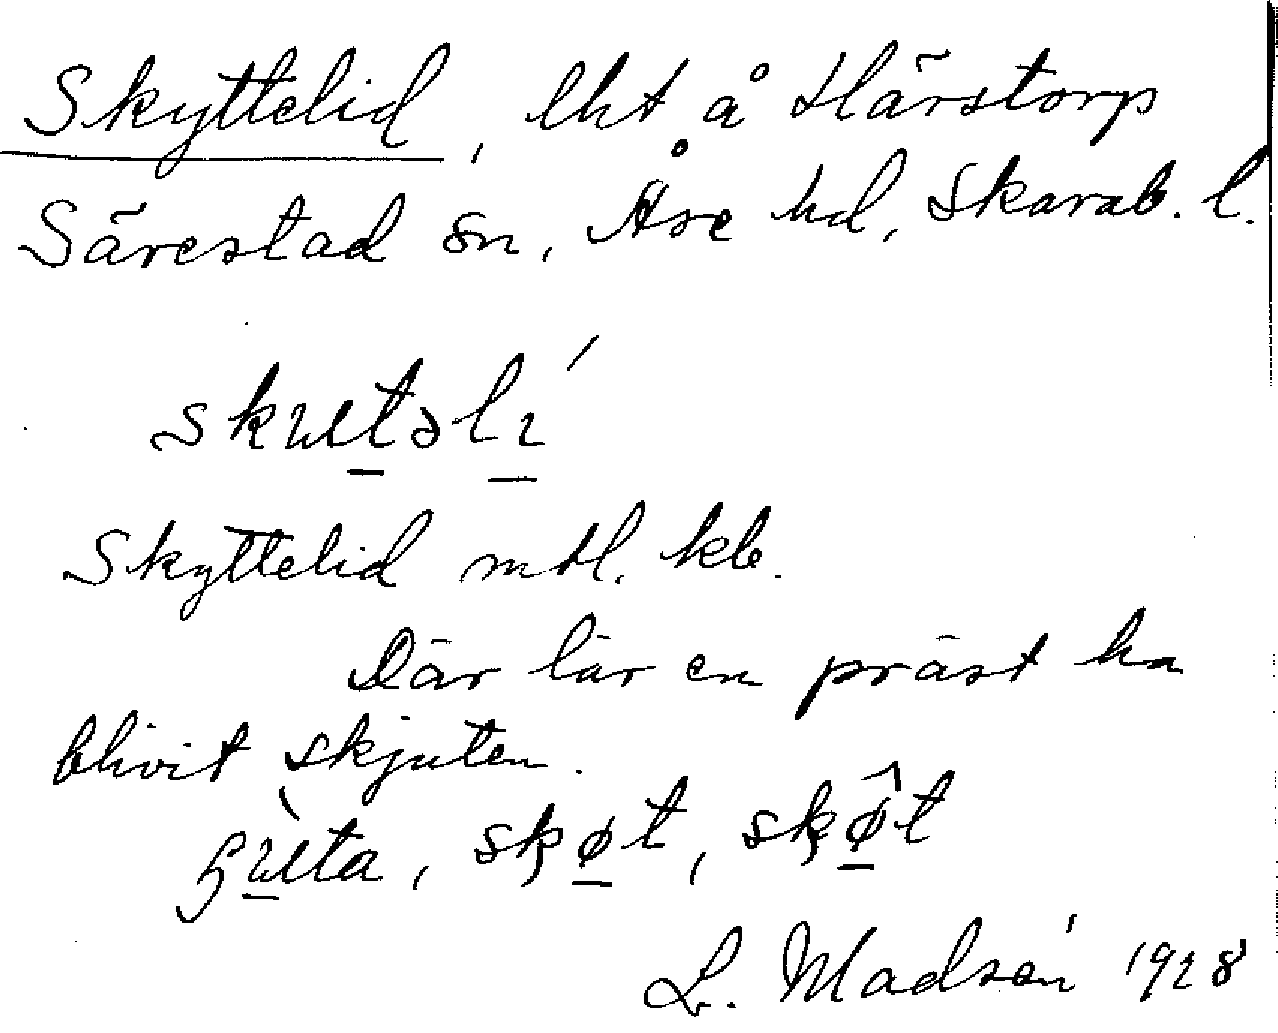 Skyttelid, lht å Härstorp
Särestad sn, Åse hd, Skarab. l.
skutəlı´
Skyttelid mtl. kb.
Där lär en präst ha
blivit skjuten.
skøt, skø̂t
L. Madsén 1928